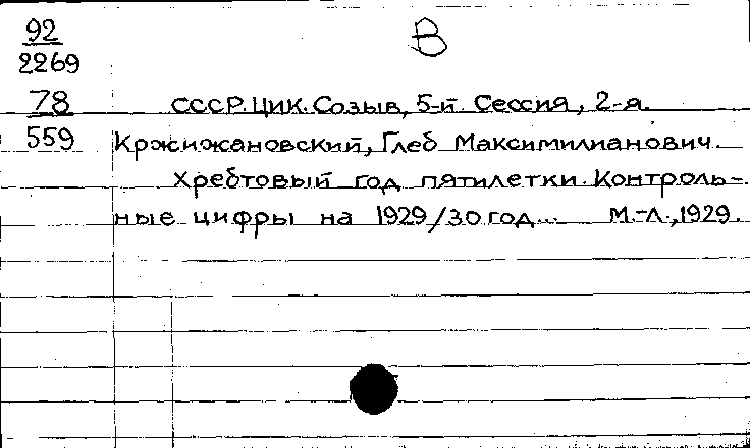 92
2269
В
78
СССР. ЦИК. Созыв, 5-й Сессия, 2-я.
559
Кржижановский, Глеб Максимилианович.
Хребтовый год пятилетки. Контроль-
ные цифры на 1929/30 год... М.-Л., 1929.